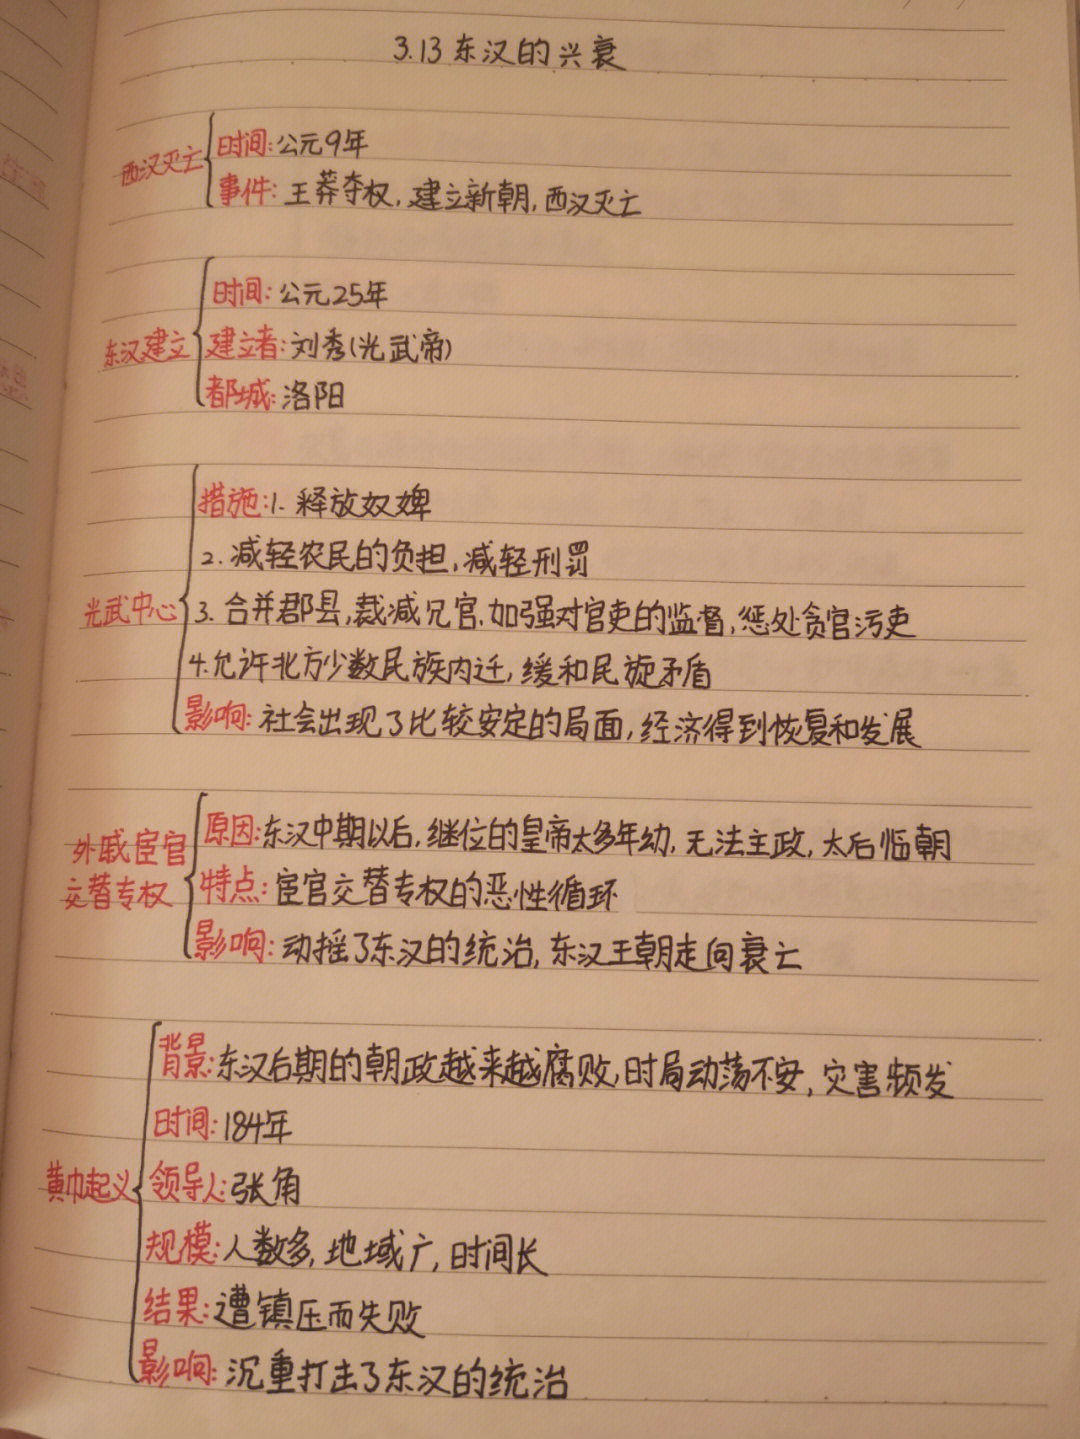 3.13 东汉的兴衰
西汉灭亡
时间:公元9年
事件:王莽夺权,建立新朝,西汉灭亡
东汉建立
时间:公元25年
建立者:刘秀(光武帝)
都城:洛阳
光武中心
措施:1.释放奴婢
2.减轻农民的负担,减轻刑罚
3.合并郡县,裁减冗官.加强对官吏的监督,惩处贪官污吏
4.允许北方少数民族内迁,缓和民族矛盾
影响:社会出现了比较安定的局面,经济得到恢复和发展
外戚宦官
交替专权
原因:东汉中期以后,继位的皇帝太多年幼,无法主政,太后临朝
特点:宦官交替专权的恶性循环
影响:动摇了东汉的统治,东汉王朝走向衰亡
黄巾起义
背景:东汉后期的朝政越来越腐败,时局动荡不安,灾害频发
时间:184年
领导人:张角
规模:人数多,地域广,时间长
结果:遭镇压而失败
影响:沉重打击了东汉的统治